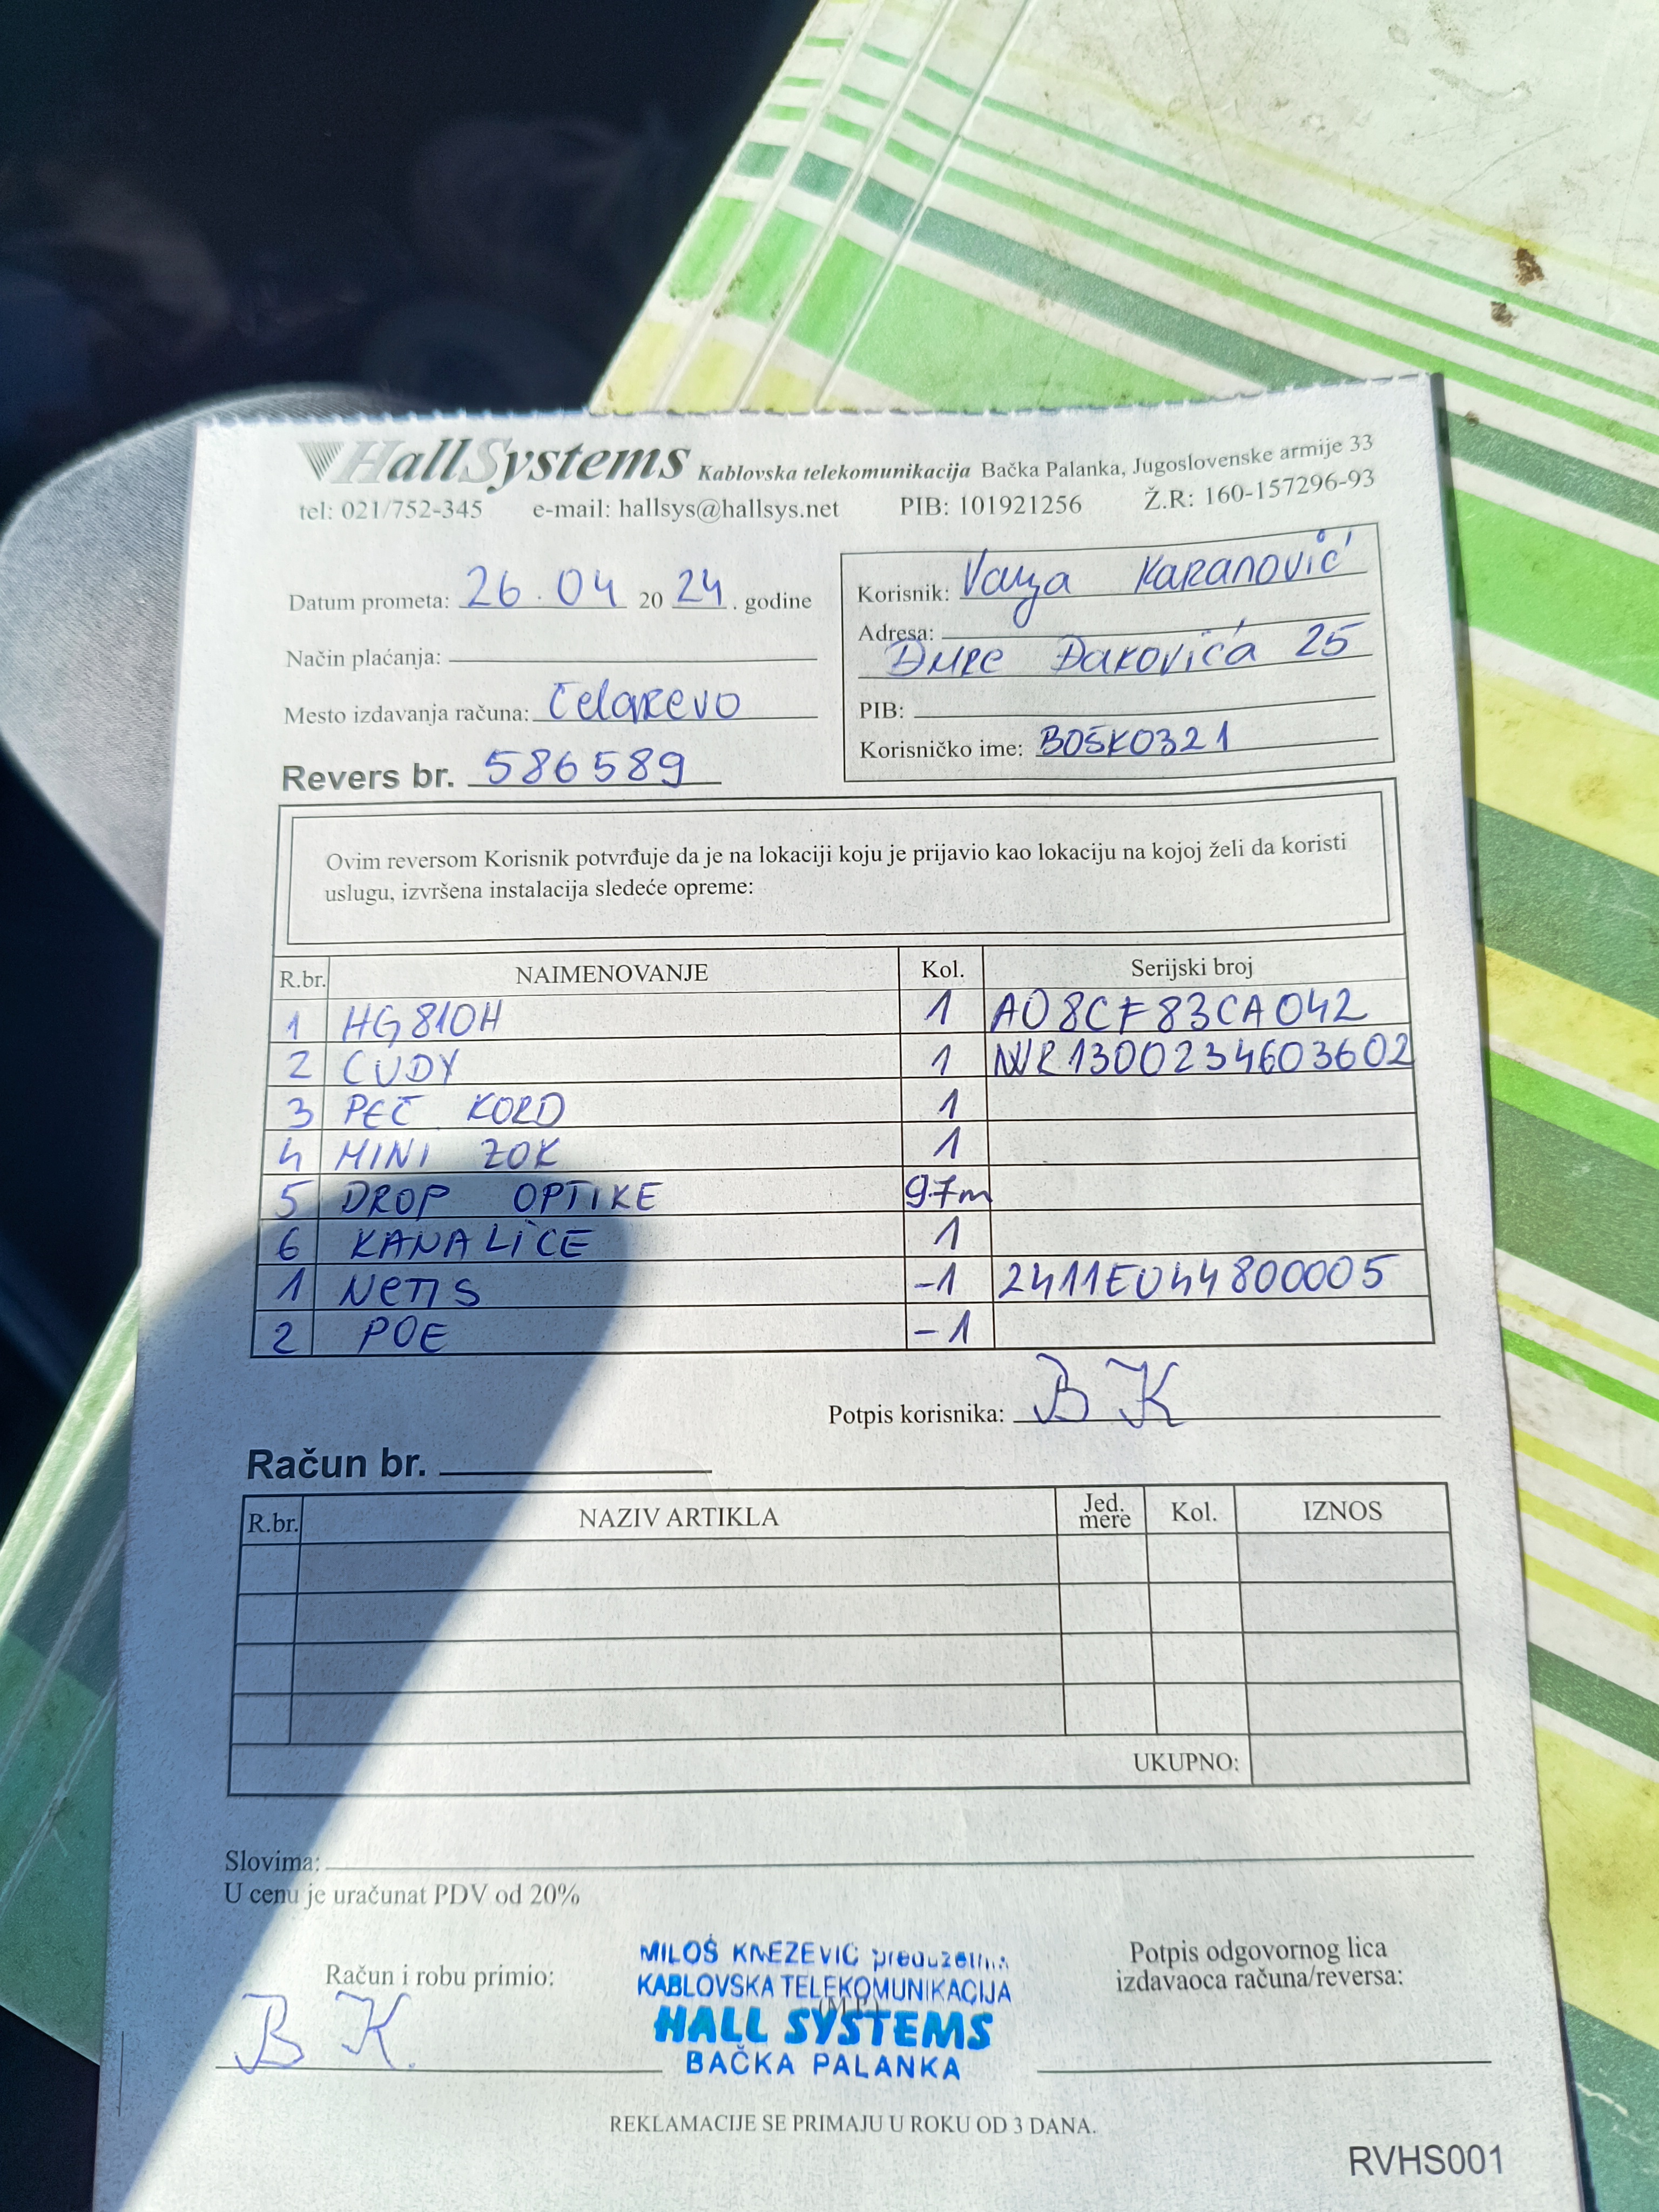 HallSystems Kablovska telekomunikacija Bačka Palanka, Jugoslovenske armije 33
tel: 021/752-345 e-mail: hallsys@hallsys.net PIB: 101921256 Ž.R: 160-157296-93
Datum prometa: 26.04 2024. godine
Način plaćanja:
Mesto izdavanja računa: Čelarevo
Revers br. 586589
Korisnik: Vanja Karanović
Adresa:
Đure Đakovića 25
PIB:
Korisničko ime: BOSKO321
Ovim reversom Korisnik potvrđuje da je na lokaciji koju je prijavio kao lokaciju na kojoj želi da koristi
uslugu, izvršena instalacija sledeće opreme:
R.br. NAIMENOVANJE Kol. Serijski broj
1 HG810H 1 A08CF83CA042
2 CUDY 1 WR1300234603602
3 PEČ KORD 1
4 MINI ZOK 1
5 DROP OPTIKE 97m
6 KANALICE 1
1 NETIS -1 2411E044800005
2 POE -1
Potpis korisnika: B K
Račun br.
R.br. NAZIV ARTIKLA Jed. mere Kol. IZNOS
UKUPNO:
Slovima:
U cenu je uračunat PDV od 20%
Račun i robu primio:
B K.
MILOŠ KNEZEVIĆ preduzetnik
KABLOVSKA TELEKOMUNIKACIJA
(M.P.)
HALL SYSTEMS
BAČKA PALANKA
Potpis odgovornog lica
izdavaoca računa/reversa:
REKLAMACIJE SE PRIMAJU U ROKU OD 3 DANA.
RVHS001